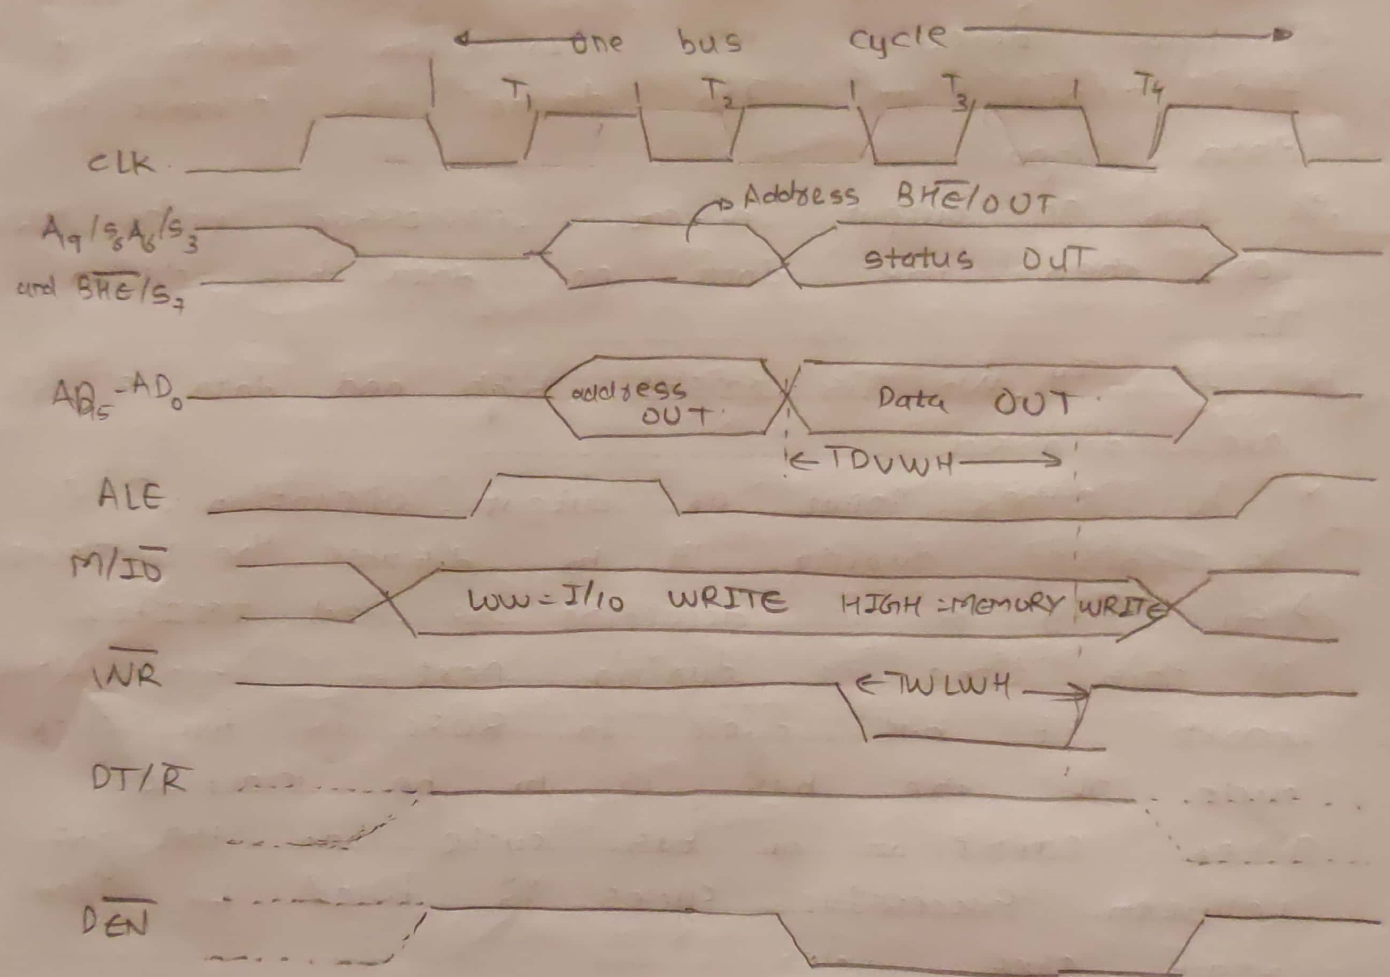 one bus cycle
T1 T2 T3 T4
CLK
Address B̅H̅E̅/OUT
A19/S6 A16/S3
and B̅H̅E̅/S7
status OUT
AD15-AD0
address
OUT
Data OUT
TDVWH
ALE
M/I̅O̅
LOW=I/10 WRITE HIGH=MEMORY WRITE
W̅R̅
TWLWH
DT/R̅
D̅E̅N̅